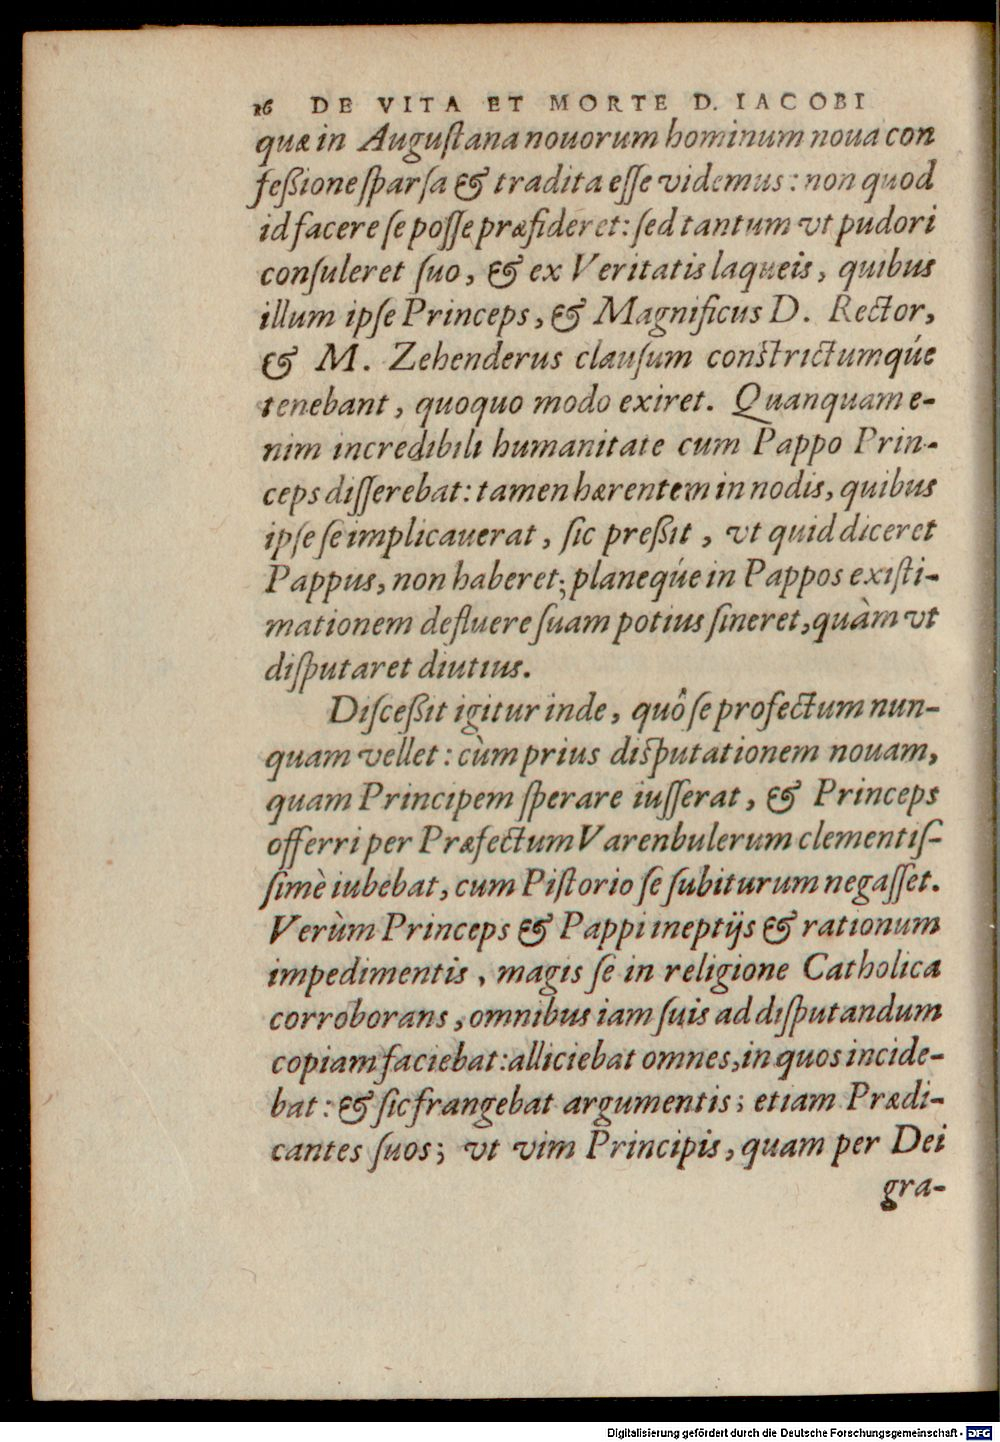 16 DE VITA ET MORTE D. IACOBI
quæ in Auguſtana nouorum hominum noua con
feßione ſparſa & tradita eſſe videmus: non quod
id facere ſe poſſe præfideret: ſed tantum vt pudori
conſuleret ſuo, & ex Veritatis laqueis, quibus
illum ipſe Princeps, & Magnificus D. Rector,
& M. Zehenderus clauſum conſtrictumqúe
tenebant, quoquo modo exiret. Quanquam e-
nim incredibili humanitate cum Pappo Prin-
ceps diſſerebat: tamen hærentem in nodis, quibus
ipſe ſe implicauerat, ſic preßit, vt quid diceret
Pappus, non haberet; planeqúe in Pappos exiſti-
mationem defluere ſuam potius ſineret, quàm vt
diſputaret diutius.
Diſceßit igitur inde, quô ſe profectum nun-
quam vellet: cùm prius diſputationem nouam,
quam Principem ſperare iuſſerat, & Princeps
offerri per Præfectum Varenbulerum clementiſ-
ſimè iubebat, cum Piſtorio ſe ſubiturum negaſſet.
Verùm Princeps & Pappi ineptijs & rationum
impedimentis, magis ſe in religione Catholica
corroborans, omnibus iam ſuis ad diſputandum
copiam faciebat: alliciebat omnes, in quos incide-
bat: & ſic frangebat argumentis; etiam Prædi-
cantes ſuos; vt vim Principis, quam per Dei
gra-
Digitalisierung gefördert durch die Deutsche Forschungsgemeinschaft - DFG